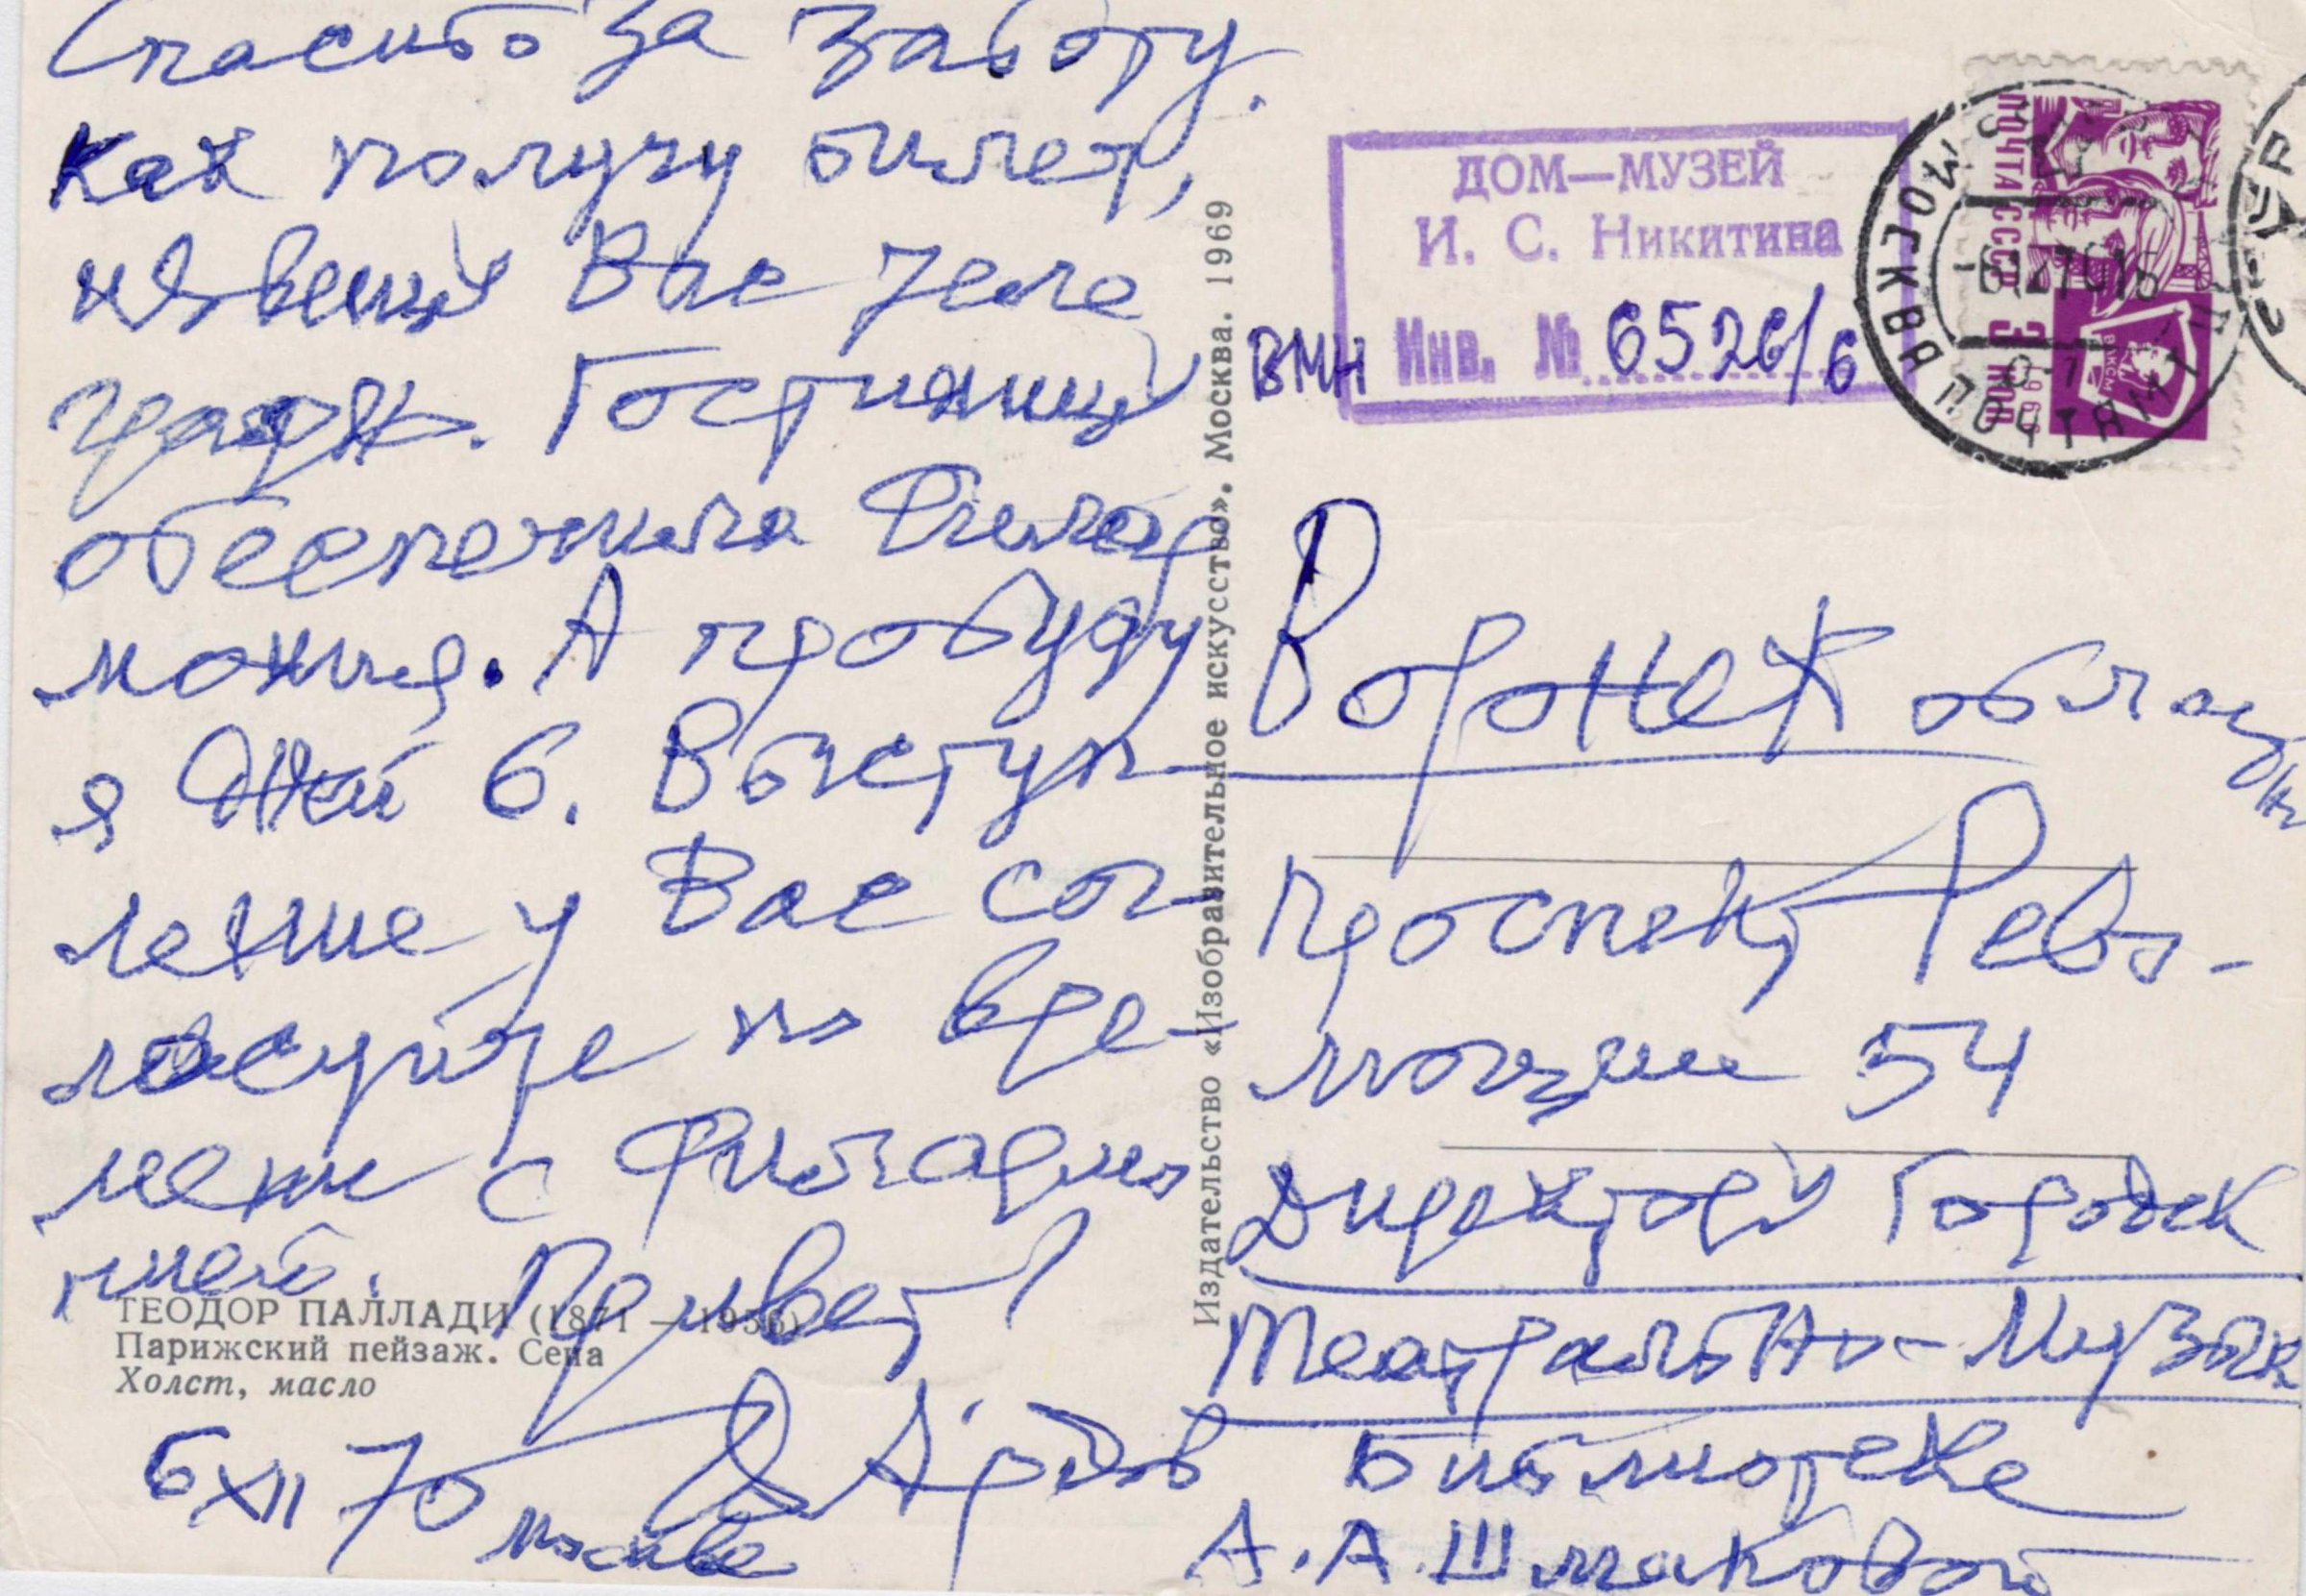 Спасибо за заботу.
Как получу билет,
извещу Вас теле
графн. Гостиницу
обеспечила Филар
мония. А пробуду
я дней 6. Выступ
ление у Вас сог-
ласуйте по вре-
мени с Филармо
нией. Привет!
ТЕОДОР ПАЛЛАДИ (1871 — 1956)
Парижский пейзаж. Сена
Холст, масло
6 XII 70 Москва
В Ардов
Издательство «Изобразительное искусство». Москва. 1969
ДОМ—МУЗЕЙ
И. С. Никитина
ВМН Инв. № 6526/6
ПОЧТА СССР 3 КОП
ВЛКСМ
МОСКВА ПОЧТАМТ
Воронеж областн
Проспект Рево-
люции 54
Директору Городск
Театрально-Музык
Библиотеке
А.А.Шмаковой